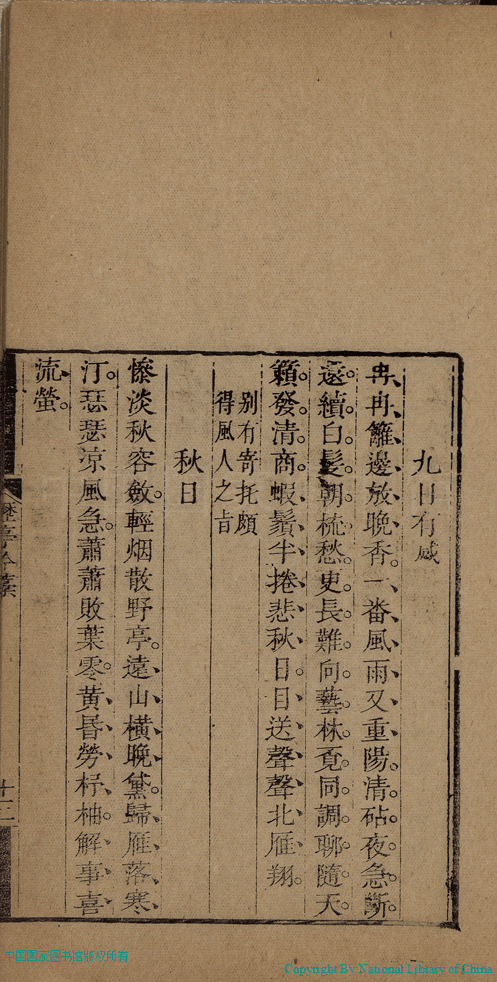 九日有感
冉冉籬邊放晚香。一番風雨又重陽。清砧夜急斷
還續。白髮朝梳愁更長。難向藝林覓同調。聊隨天
籟發清商。蝦鬚半捲悲秋日。日送聲聲北雁翔。
别有寄托頗
得風人之旨
秋日
慘淡秋容斂。輕烟散野亭。遠山橫晚黛。歸雁落寒
汀。瑟瑟凉風急。蕭蕭敗葉零。黄昏勞杼柚。解事喜
流螢。
十二
中国国家图书馆版权所有
Copyright By National Library of China